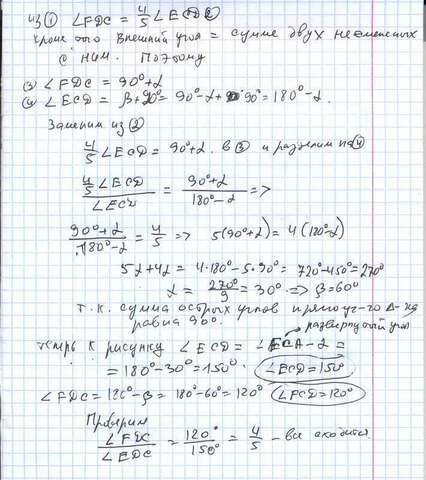 из ① ∠FDC = 4/5 ∠ECD ②
Кроме того внешний угол = сумме двух не смежных
с ним. Поэтому
③ ∠FDC = 90°+α
④ ∠ECD = β+90° = 90°-α+90° = 180°-α.
Заменим из ②
4/5 ∠ECD = 90°+α. в ③ и разделим на ④
4/5 ∠ECD / ∠ECD = 90°+α / 180°-α =>
90°+α / 180°-α = 4/5 => 5(90°+α) = 4(180°-α)
5α+4α = 4·180°-5·90° = 720°-450° = 270°
α = 270°/9 = 30° => β = 60°
т.к. сумма острых углов прямоуг-го Δ-ка
равна 90°.
развернутый угол
теперь к рисунку ∠ECD = ∠ECA-α =
= 180°-30° = 150°. ∠ECD = 150°
∠FDC = 180°-β = 180°-60° = 120° ∠FCD = 120°
Проверим
∠FDC / ∠EDC = 120° / 150° = 4/5 - все сходится.